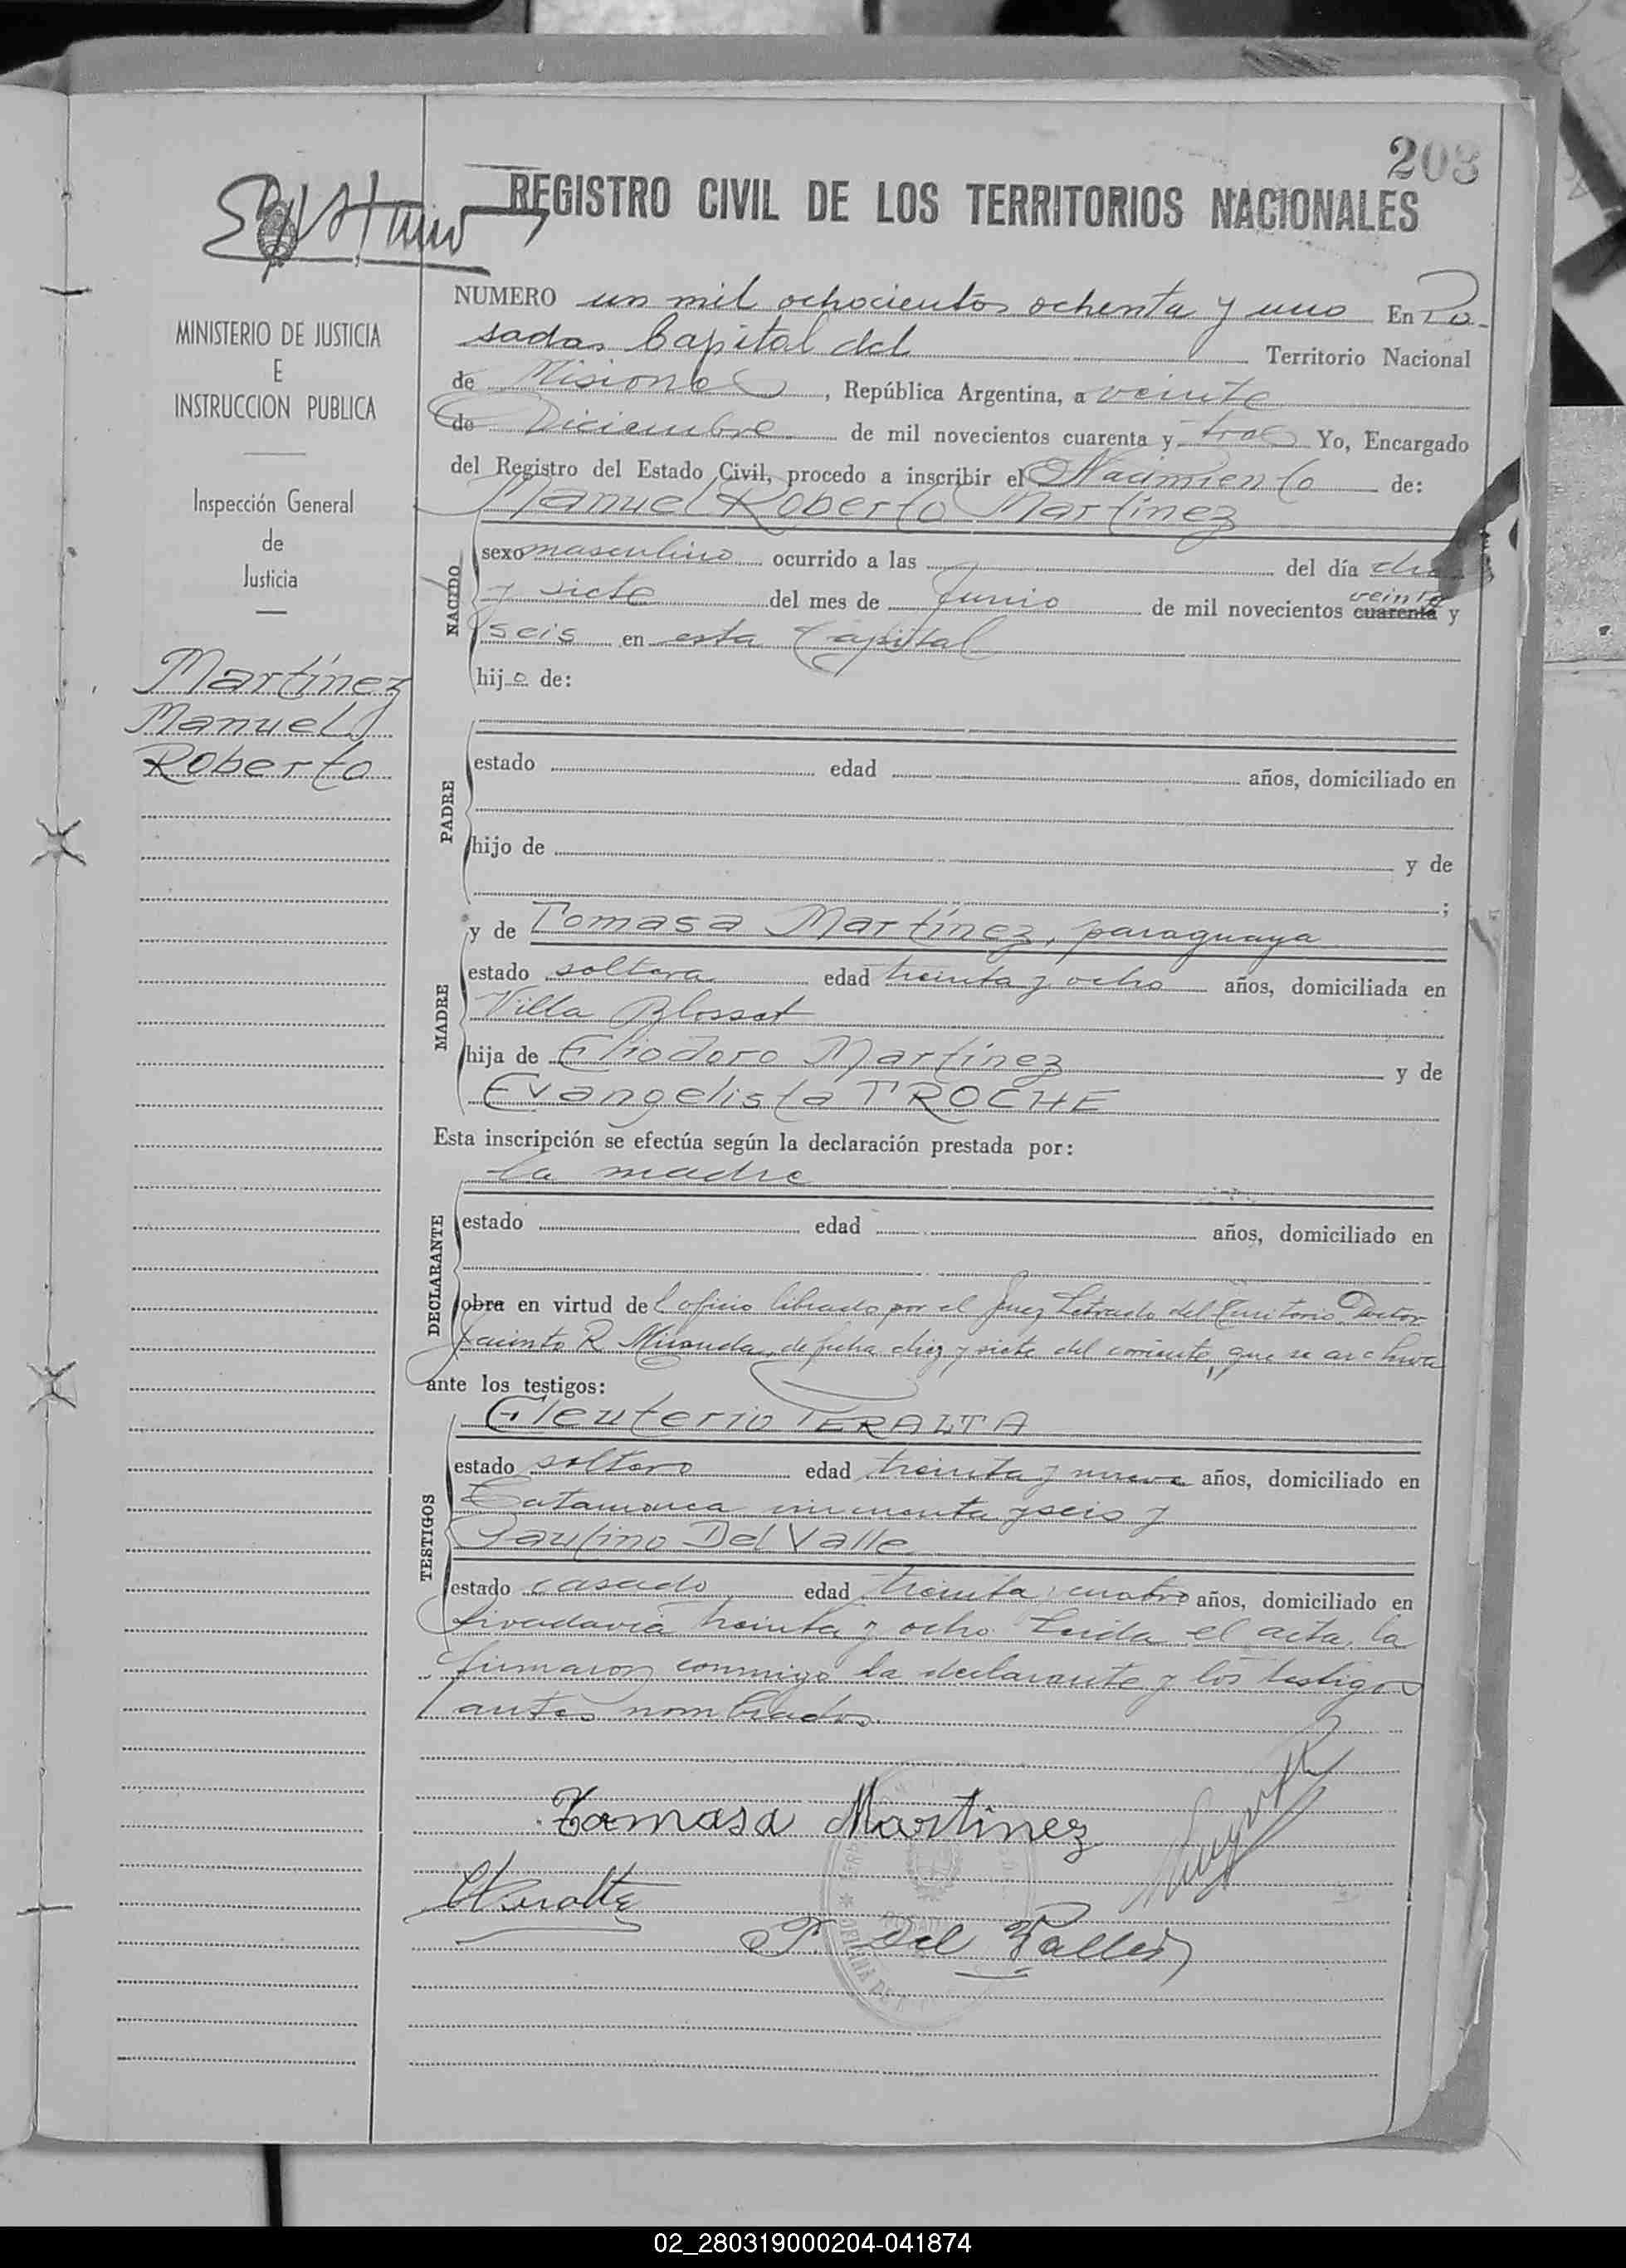 203
REGISTRO CIVIL DE LOS TERRITORIOS NACIONALES
MINISTERIO DE JUSTICIA
E
INSTRUCCION PUBLICA
Inspección General
de
Justicia
Martínez
Manuel
Roberto
NUMERO un mil ochocientos ochenta y uno En Po-
sadas Capital del Territorio Nacional
de Misiones, República Argentina, a veinte
de Diciembre de mil novecientos cuarenta y tres Yo, Encargado
del Registro del Estado Civil, procedo a inscribir el Nacimiento de:
Manuel Roberto Martínez
NACIDO
sexo masculino ocurrido a las del día
y siete del mes de Junio de mil novecientos veinte cuarenta y
seis en esta Capital
hijo de:
PADRE
estado edad años, domiciliado en
hijo de y de
;
MADRE
y de Tomasa Martínez, paraguaya
estado soltera edad treinta y ocho años, domiciliada en
Villa Blosset
hija de Eliodoro Martínez y de
Evangelista TROCHE
Esta inscripción se efectúa según la declaración prestada por:
la madre
DECLARANTE
estado edad años, domiciliado en
obra en virtud del oficio librado por el Juez Letrado del Territorio Doctor
Jacinto R. Miranda, de fecha diez y siete del corriente, que se archiva
ante los testigos:
TESTIGOS
Eleuterio PERALTA
estado soltero edad treinta y nueve años, domiciliado en
Catamarca cincuenta y seis y
Paulino Del Valle
estado casado edad treinta cuatro años, domiciliado en
Rivadavia treinta y ocho. Leida el acta, la
firmaron conmigo la declarante y los testigos
antes nombrados.
Tomasa Martinez
P. Del Valle
02_280319000204-041874